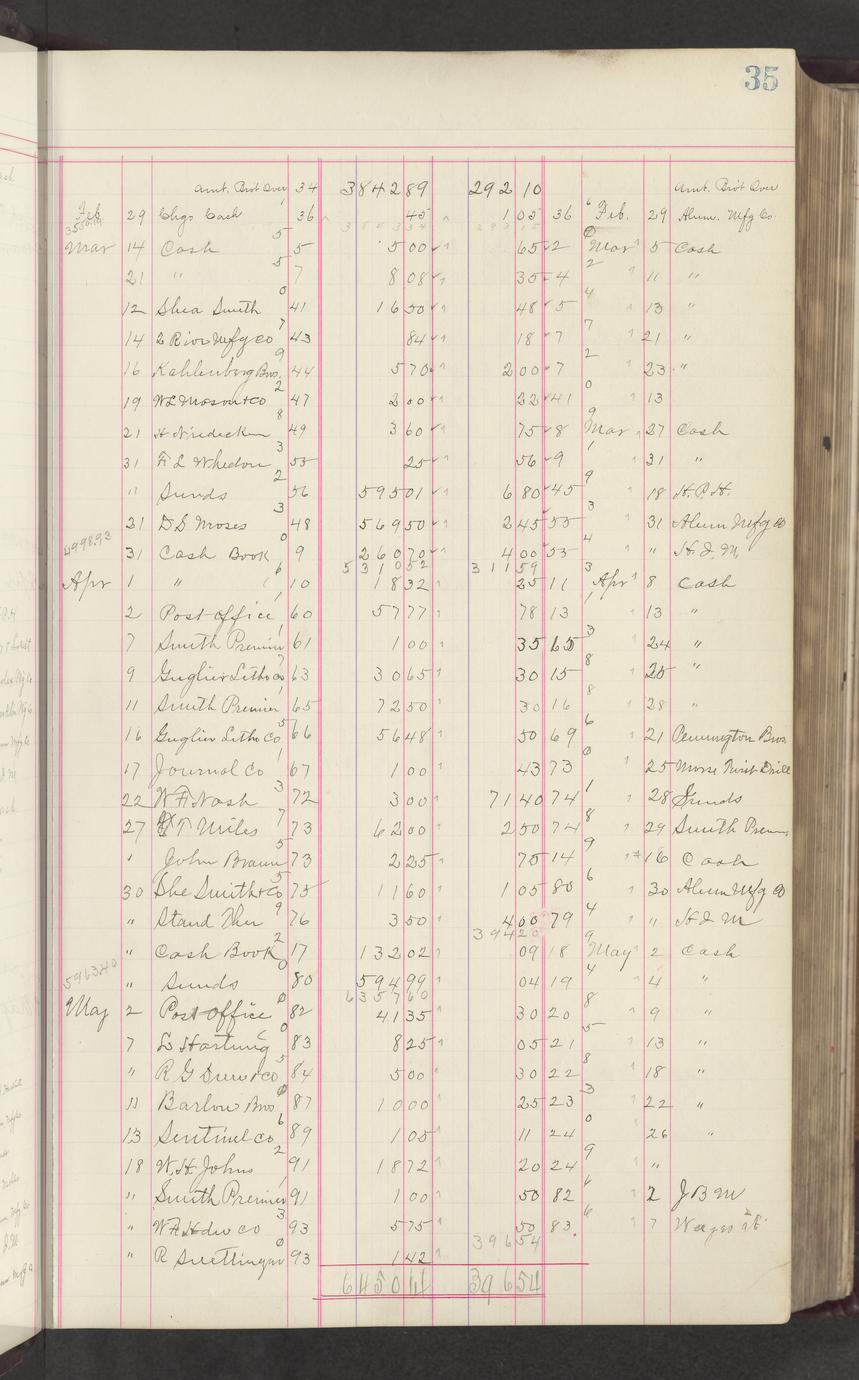 35
Amt. Brot Over 34 3842 89 292 10 Amt. Brot Over
Feb 29 Chgs Cash 36 45 1 05 36 Feb. 29 Alum. Mfg Co.
Mar 14 Cash 5 5 00 65 2 Mar 5 Cash
21 " 7 8 08 35 4 11 "
12 Shea Smith 41 16 50 48 5 13 "
14 2 River Mfg Co 43 84 18 7 21 "
16 Kahlenberg Bros. 44 5 70 2 00 7 23 "
19 47 2 00 22 41 13
21 49 3 60 75 8 Mar 27 Cash
31 F L Whedon 55 25 56 9 31 "
" Sunds 56 595 01 6 80 45 18 H. P. H.
31 D S Moses 48 569 50 2 45 55 31 Alum Mfg Co
4998.93
31 Cash Book 9 260 70 4 00 55 " H. I. M.
5310 52 311 59
Apr 1 " 10 18 32 25 11 Apr 8 Cash
2 Post office 60 57 77 78 13 13 "
7 Smith Premier 61 1 00 35 65 24 "
9 Gugler Litho Co 63 30 65 30 15 25 "
11 Smith Premier 65 72 50 30 16 28 "
16 Gugler Litho Co 66 56 48 50 69 21 Pennington Bros.
17 Journal Co 67 1 00 43 73 25 Morse Twist Drill
22 W F Nash 72 3 00 71 40 74 28 Sunds
27 T Miles 73 62 00 2 50 74 29 Smith Prem.
" John Braun 73 2 25 75 14 16 Cash
30 She Smith & Co 75 11 60 1 05 80 30 Alum Mfg Co
" Stand Ther 76 3 50 4 00 79 " H I M
394 20
" Cash Book 17 132 02 09 18 May 2 Cash
5963.40
" Sunds 80 594 99 04 19 4 "
6357 60
May 2 Post office 82 41 35 30 20 9 "
7 L Hartung 83 8 25 05 21 13 "
" R G Dun & Co 84 5 00 30 22 18 "
11 Barlow Bros 87 10 00 25 23 22 "
13 Sentinel Co 89 1 05 11 24 26 "
18 W. H. Johns 91 18 72 20 24 "
" Smith Premier 91 1 00 50 82 2 J B M
" W A Hdw Co 93 5 75 50 83. 7 Wages
396 54
" R Suettinger 93 1 42
6450 41 396 54